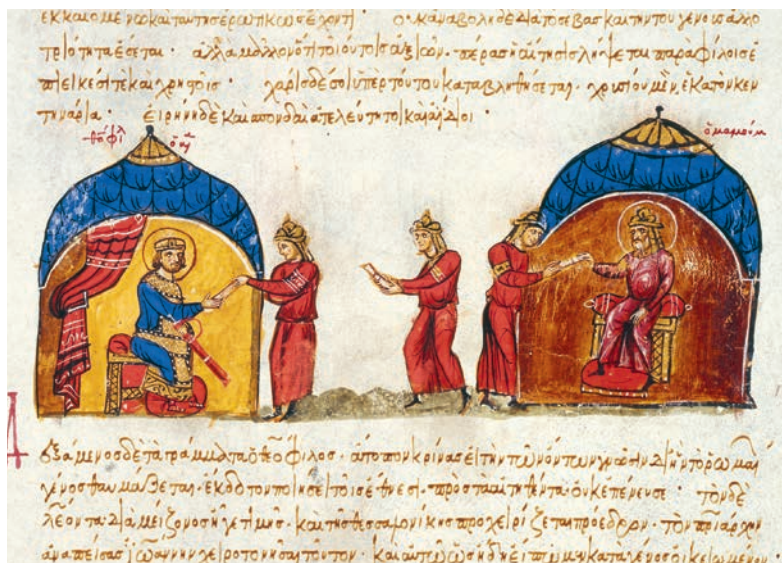 ἐκκαιομένω καὶ ταύτης ἐρωτικῶς ἔχοντι · οὐκ ἀναβολὴ δὲ διὰ τὸ σέβας καὶ τὴν τοῦ γένους ἀλλο
τριότητα ἔσεται · ἀλλὰ μᾶλλον ὅτι τοιούτοις ἀξίων · πέρας ἡ αἴτησις λήψεται παρὰ φίλοις ἐ
πιεικέσι τὲ καὶ χρηστοῖς · χάρις δέ σοι ὑπὲρ τούτου καταβληθήσεται · χρυσίου μὲν, ἑκατὸν κεν
τηνάρια · εἰρήνη δὲ καὶ σπονδαὶ ἀτελεύτητοι καὶ ἀΐδιοι ·
θεόφιλ
ὁ μαμούμ
δεξάμενος δὲ τὰ γράμματα ὁ θεόφιλος · ἄτοπον κρίνας εἰ τὴν τῶν ὄντων γνῶσιν δι' ἣν τὸ ῥωμαί
γένος θαυμάζεται · ἔκδοτον ποιήσει τοῖς ἔθνεσι · πρὸς τὰ αἰτηθέντα οὐκ ἐπένευσε · τὸν δὲ
λέοντα διὰ μείζονος ἡγεῖτο τιμῆς · καὶ τῆς θεσσαλονίκης προχειρίζεται πρόεδρον · τὸν πριάρχην
ἀναπείσας ἰωάννην χειροτονῆσαι τοῦτον · καὶ αὐτῶ ὡς ἤδη εἴπωμεν κατὰ γένος οἰκειούμενον ·